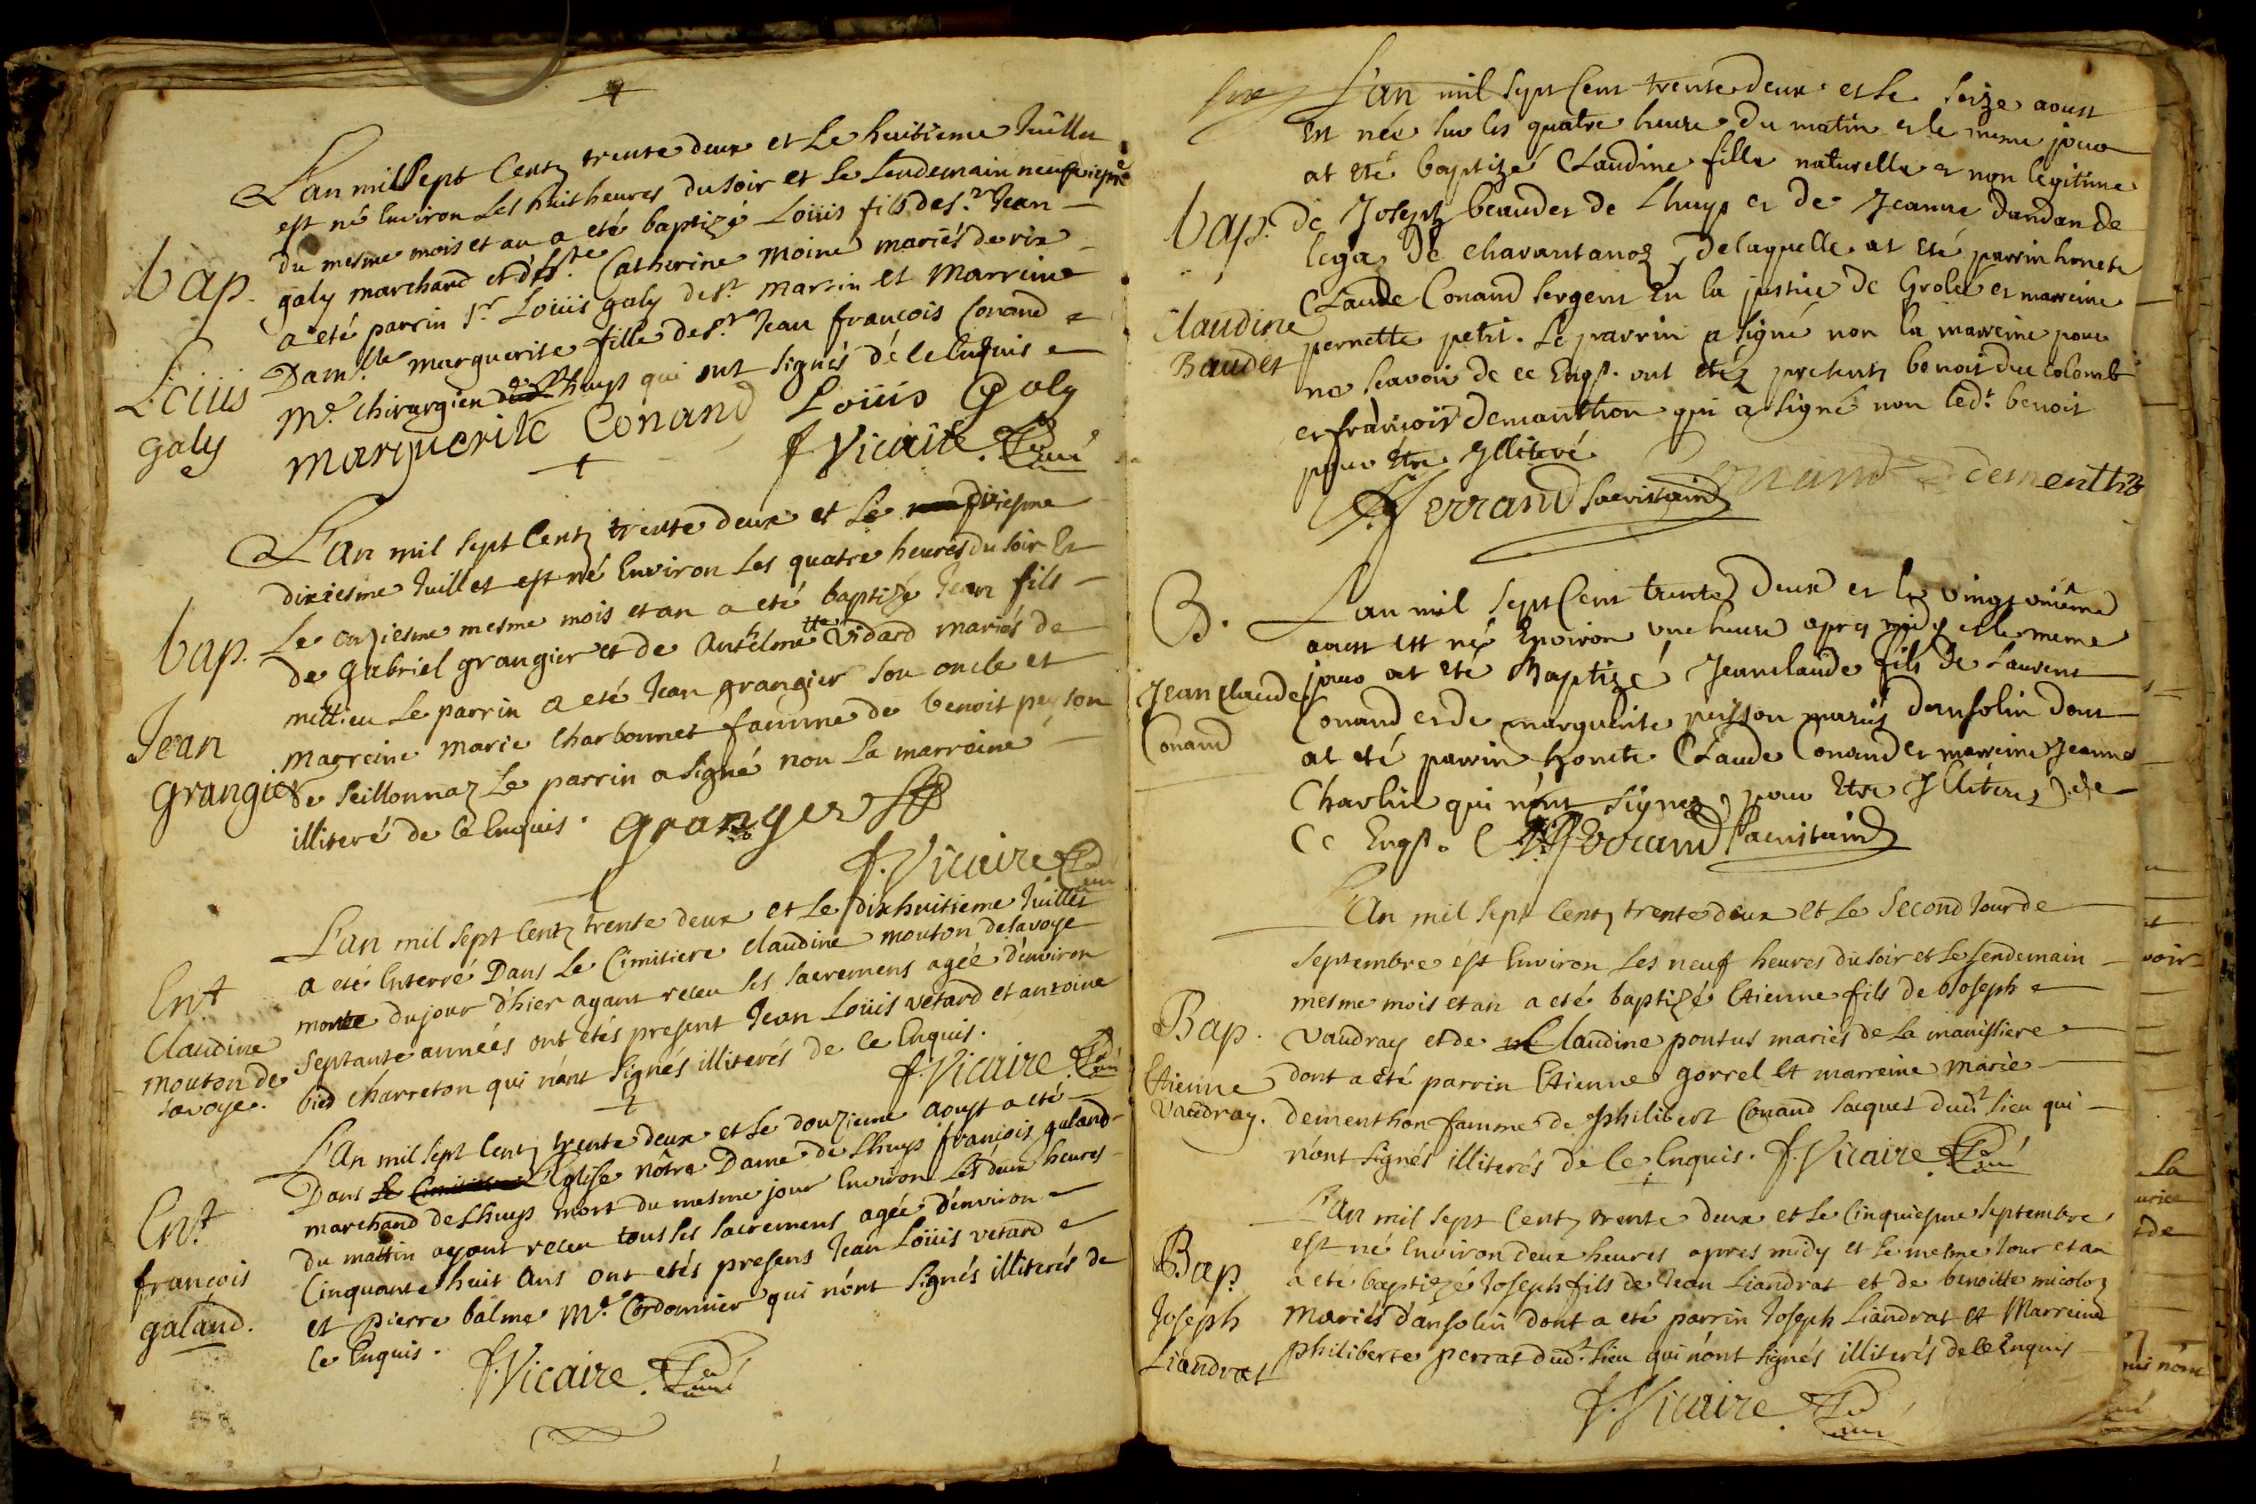 L'an mil sept Centz trente deux et Le huitieme Juillet
est né Environ Les huit heures du soir et Le Lendemain neufviesme
du mesme mois et an a eté baptizé Loüis fils de s.r Jean
bap.
galy marchand et d'h.ste Catherine moine mariés de rix
a eté parrin s.r Loüis galy de s.t martin et Marreine
Dam.lle marguerite fille de s.r Jean françois Conand
Loüis
galy
M.e chirurgien de Lhuys qui ont signés de ce Enquis
marguerite Conand Loüis Galy
f. Vicaire. Curé
L'an mil sept Centz trente deux et Le
dixiesme Juillet est né Environ Les quatre heures du soir Et
Le onziesme mesme mois et an a eté baptizé Jean fils
bap.
de gabriel grangier et de Anthelmette Vidard mariés de
millieu Le parrin a eté Jean grangier son oncle et
Jean
grangier
marreine marie Charbonnet famme de benoit peyson
de Seillonnaz Le parrin a signé non La marraine
illiteré de Ce Enquis. granger
f. Vicaire Curé
L'an mil sept Centz trente deux et Le dixhuitieme Juillet
a eté Enterré Dans Le Cimitiere Claudine mouton de savoye
Ent.
morte du jour d'hier ayant receu les sacremens agée d'environ
Claudine
mouton de
savoye.
Septante années ont etés present Jean Loüis vetard et antoine
bied charreton qui n'ont signés illiterés de Ce Enquis.
f. Vicaire Curé
L'An mil sept Centz trente deux et Le douzieme Aoust a eté
Dans Le Cimitiere L'Eglise nôtre Dame de Lhuys françois galand
Ent.
marchand de Lhuys mort du mesme jour Environ Les deux heures
du mattin ayant receu tous les sacremens agée d'environ
françois
galand.
Cinquante huit Ans ont etés presens Jean Loüis vetard
et pierre balme M.e Cordonnier qui n'ont signés illiterés de
Ce Enquis.
f. Vicaire. Curé
L'an mil sept Cent trente deux et le seize aoust
est née sur les quatre heure du matin et le meme jour
at eté baptizé Claudine fille naturelle et non legitime
bap.
de Joseph beaudet de Lhuys et de Jeanne dandan de
lega de charantanoz, de laquelle at eté parrin honete
Claudine
Baudet
Claude Conand sergent En la justice de Grolée et marreine
pernette petit. Le parrin a signé non la marreine pour
ne scavoir de ce Enqs. ont etéz presentz benoit duc colomb
et francois demanthon qui a signé non led.t benoit
pour être Illiteré
Ferrand Sacristain Conand dementhon
B.
L'an mil sept Cent trente deux et le vingt onième
aoust est né Environ une heure apres midy et le meme
Jean Claude
Conand
jour at eté Baptizé Jeanclaude fils de Laurent
Conand et de marguerite peysson mariés d'ansolin dont
at eté parrin honete Claude Conand et marreine Jeanne
Charlin qui n'ont signez, pour Etre Illiterés, de
Ce Enqs. Ferrand Sacristain
L'An mil sept Centz trente deux et Le second Jour de
septembre est Environ Les neuf heures du soir et Le Lendemain
mesme mois et an a eté baptizé Etienne fils de Joseph
Bap.
Vaudray et de Claudine pontus mariés de La manissiere
Etienne
Vaudray.
dont a eté parrin Etienne gorrel et marreine Marie
dementhon famme de philibert Conand Jacques dud.t Lieu qui
n'ont signés illiterés de Ce Enquis. f. Vicaire Curé
L'An mil sept Centz trente deux et Le Cinquiesme septembre
est né Environ deux heures apres midy et Le mesme Jour et an
Bap
a eté baptizé Joseph fils de Jean Liandrat et de benoitte micoloz
Joseph
Liandrat
Mariés d'ansolin dont a eté parrin Joseph Liandrat et Marreine
philiberte perrat dud.t Lieu qui n'ont signés illiterés de Ce Enquis
f. Vicaire. Curé